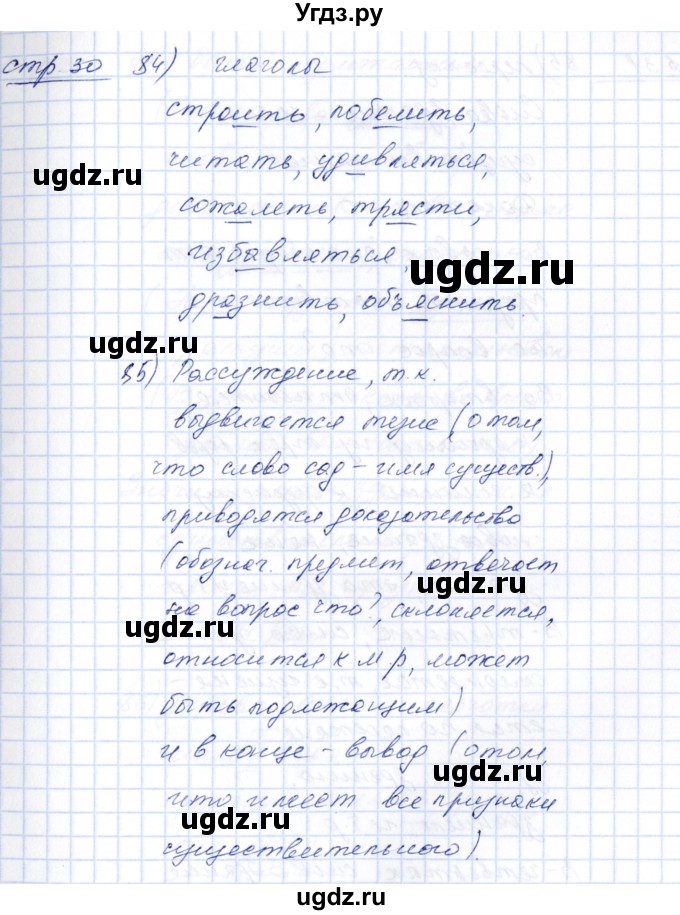 Угдз.ру
стр. 30 84) глаголы
строить, побелить,
читать, удивляться,
ugdz.ru
сожалеть, трясти,
избавляться,
ugdz.ru
ugdz.ru
дразнить, объяснить.
85) Рассуждение, т.к.
ugdz.ru
выдвигается тезис (о том,
что слово сад – имя существ.),
приводятся доказательство
ugdz.ru
(обознач. предмет, отвечает
на вопрос что?, склоняется,
ugdz.ru
относится к м р, может
быть подлежащим)
и в конце – вывод (о том,
ugdz.ru
что имеет все признаки
ugdz.ru
существительного).
ugdz.ru